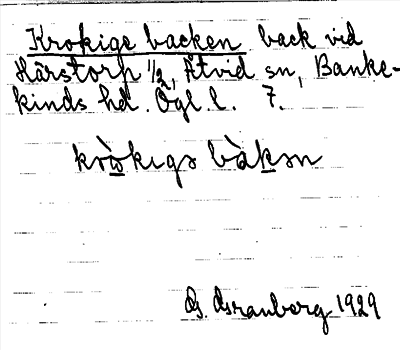 Krokige backen back vid
Härstorp 1/2, Åtvid sn, Banke-
kinds hd. Ögl. l. 7.
kròkigə bàkən
G. Granberg 1929